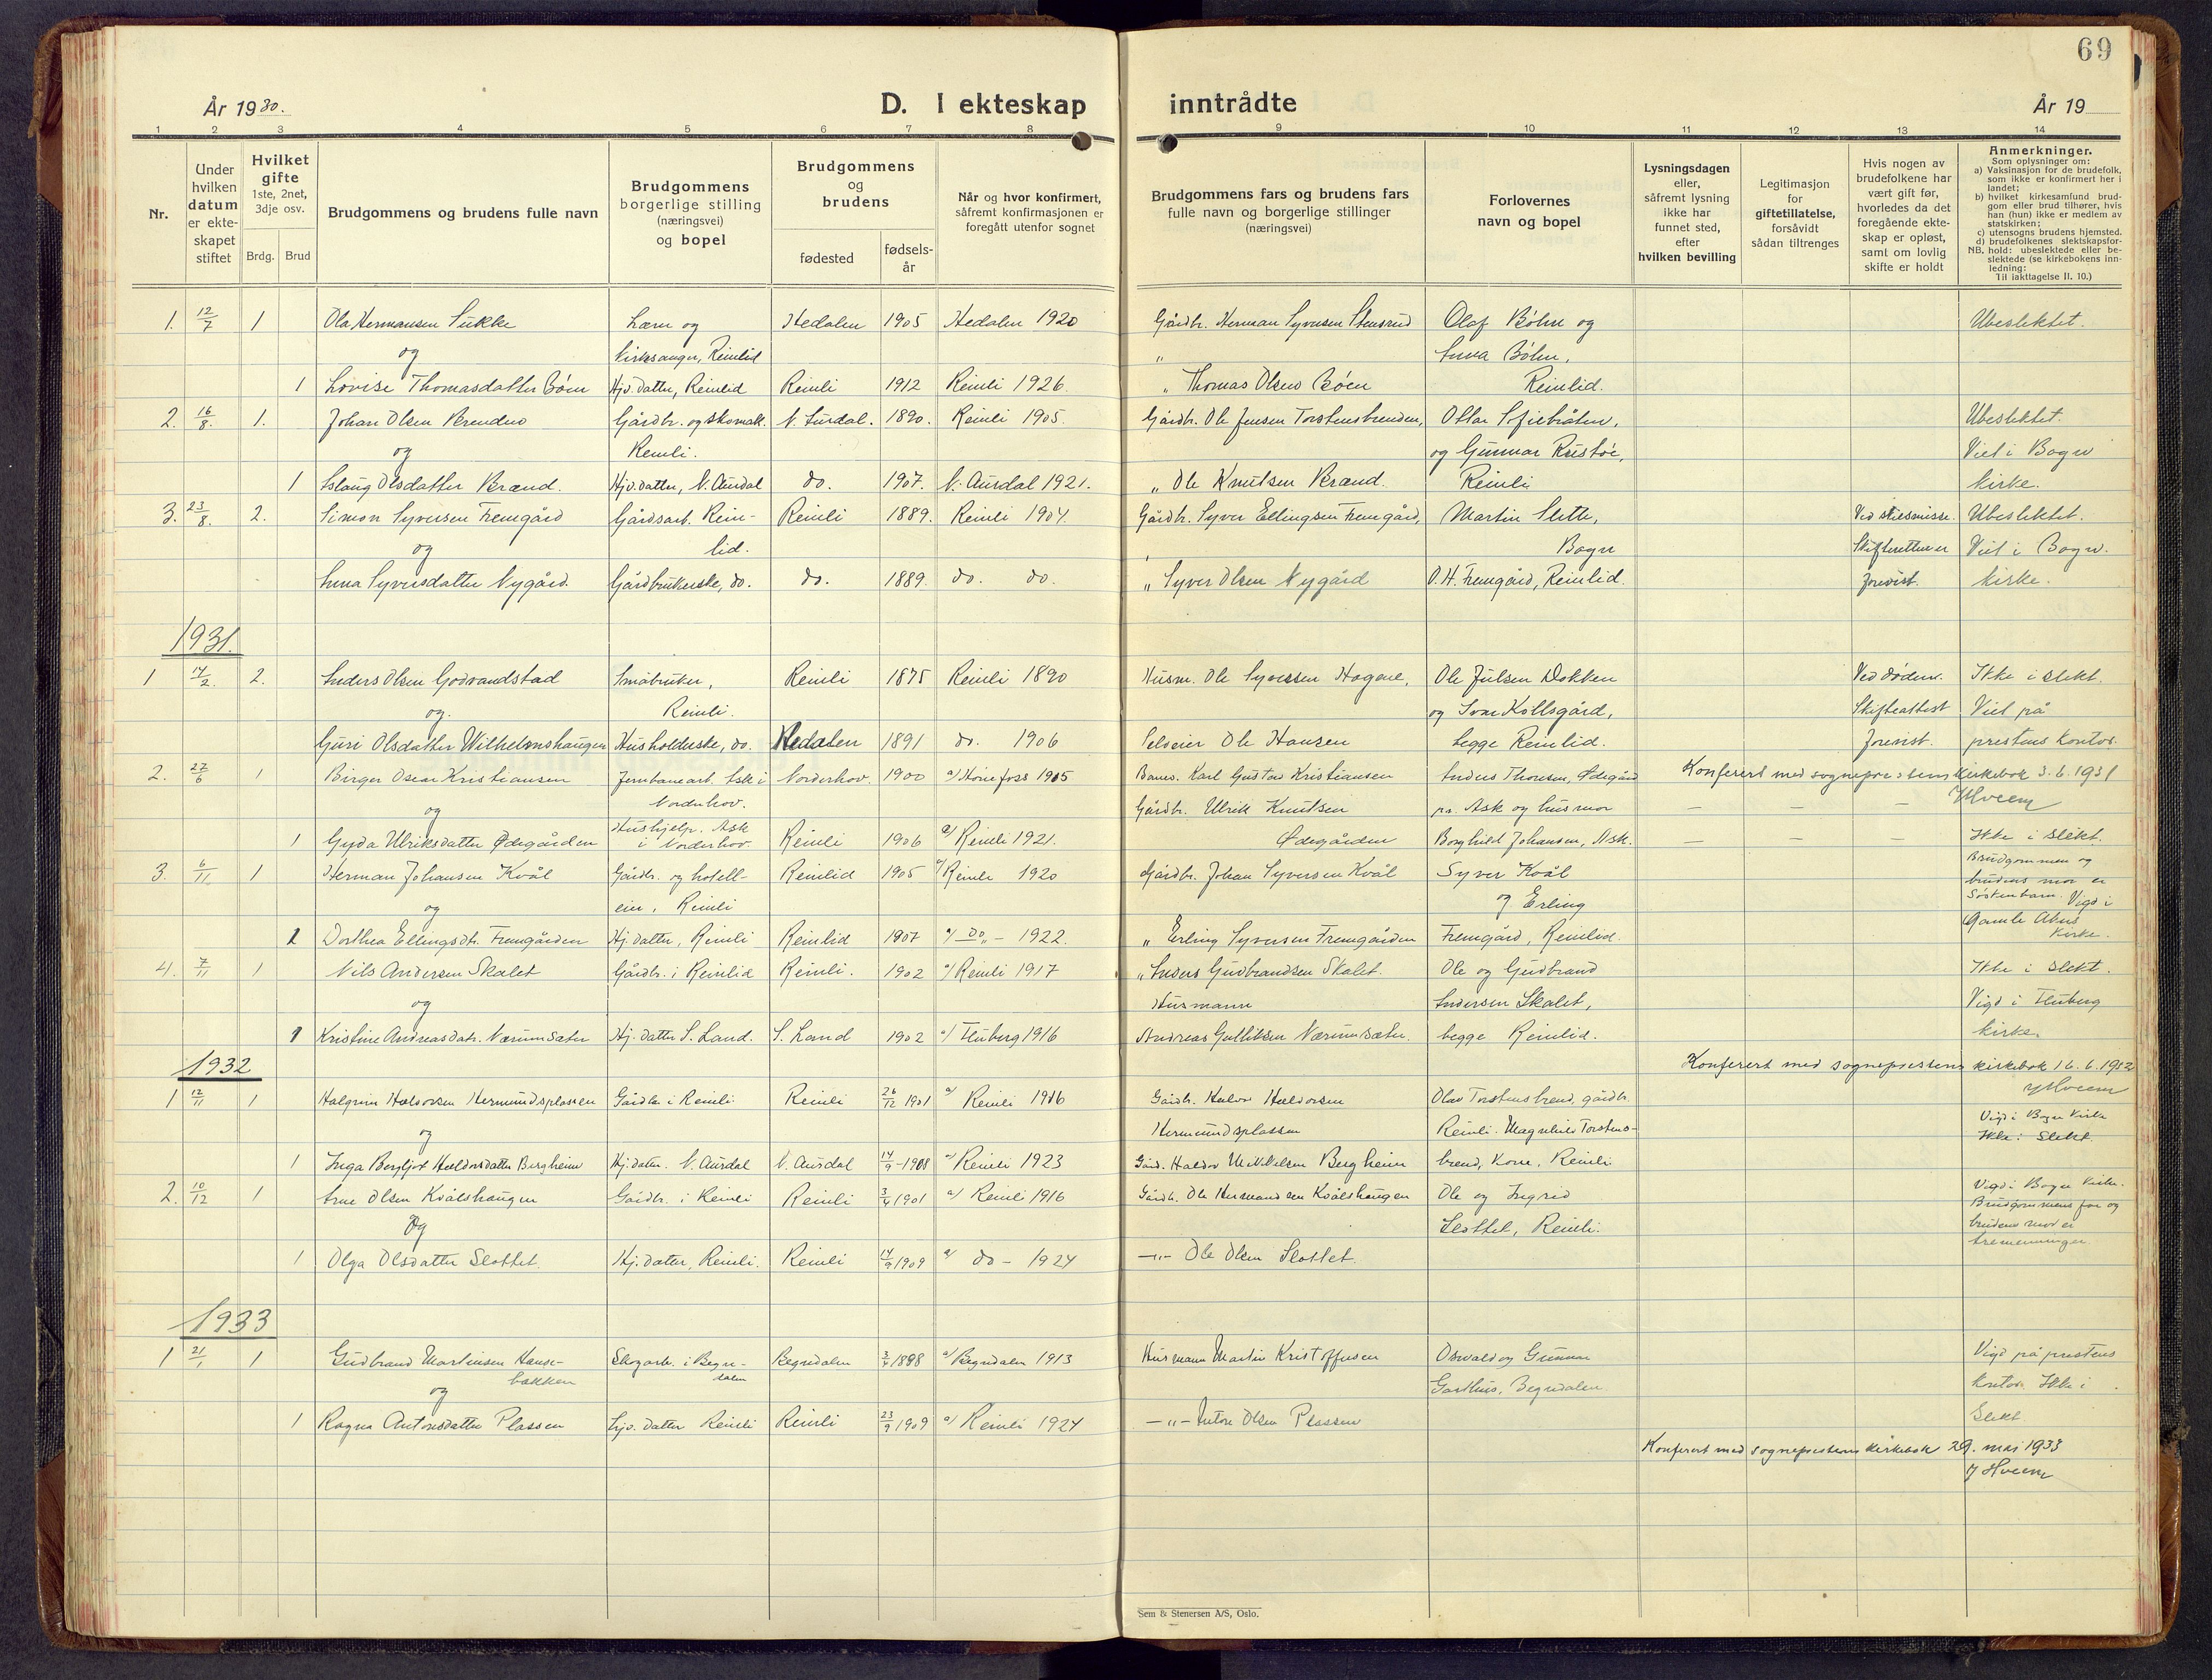 69
År 1930.
D. I ekteskap inntrådte
År 19
1 2 3 4 5 6 7 8 9 10 11 12 13 14
Nr.
Under hvilken datum er ekteskapet stiftet
Hvilket gifte 1ste, 2net, 3dje osv.
Brdg. Brud
Brudgommens og brudens fulle navn
Brudgommens borgerlige stilling (næringsvei) og bopel
Brudgommens og brudens
fødested
fødsels-år
Når og hvor konfirmert, såfremt konfirmasjonen er foregått utenfor sognet
Brudgommens fars og brudens fars fulle navn og borgerlige stillinger (næringsvei)
Forlovernes navn og bopel
Lysningsdagen eller, såfremt lysning ikke har funnet sted, efter hvilken bevilling
Legitimasjon for giftetillatelse, forsåvidt sådan tiltrenges
Hvis nogen av brudefolkene har vært gift før, hvorledes da det foregående ekteskap er opløst, samt om lovlig skifte er holdt
Anmerkninger.
Som oplysninger om:
a) Vaksinasjon for de brudefolk, som ikke er konfirmert her i landet;
b) hvilket kirkesamfund brudgom eller brud tilhører, hvis han (hun) ikke er medlem av statskirken;
c) utensogns brudens hjemsted.
d) brudefolkenes slektskapsforhold: ubeslektede eller beslektede (se kirkebokens innledning:
NB. Til iakttagelse II. 10.)
1. 12/7 1 Ola Hermansen Sukke Lærer og Hedalen 1905 Hedalen 1920 Gårdbr. Herman Syversen Stensrud Olaf Böhn og Ubeslektet.
og Kirkesanger, Reinlid " Anna Böhn,
1 Lovise Thomasdatter Böen Hjv. datter, Reinlid Reinli 1912 Reinli 1926. " Thomas Olsen Böen Reinlid.
2. 16/8. 1. Johan Olsen Brenden Gårdbr. og skomak. N. Aurdal. 1890. Reinli 1905. Gårdbr. Ole Jensen Torstensbrenden, Ottar Ubeslektet.
og Reinli. og Gunnar Viet i Bagn
1 Aslaug Olsdatter Brænd. Hjv. datter, N. Aurdal do. 1907. N. Aurdal 1921. " Ole Knutsen Brænd. Reinli kirke.
3. 23/8. 2. Simon Syversen Fremgård Gårdsarb. Rein- Reinli 1889. Reinli 1904. Gårdbr. Syver Ellingsen Fremgård, Martin Slette, Ved skilsmisse. Ubeslektet.
og lid. Bagn Skifteretten er Viet i Bagn.
Anna Syversdatter Nygård Gårdbrukerske, do. do. 1889. do. do. " Syver Olsen Nygård O. H. Fremgård, Reinlid. forevist. kirke.
1931.
1 14/2. 2. Anders Olsen Godvandstad Småbruker, Reinli 1875 Reinli 1890 Husm. Ole Syversen Hagene, Ole Julsen Dokken Ved döden. Ikke i slekt.
og. Reinli. og Kollsgård, Skifteattest Viet på
Guri Olsdatter Wilhelmshaugen Husholderske, do. Hedalen 1891 do. 1906 Selveier Ole Hansen begge Reinlid. forevist. prestens kontor.
2. 27/6 1 Birger Oscar Kristiansen Jernbanearb. Ask i Norderhov. 1900 a/ Hönefoss 1915 Karl Gustav Kristiansen Anders Thoresen, Ødegård Konferert med sogneprestens kirkebok 3.6.1931
og Norderhov. Gårdbr. Ulrik Knutsen pr. Ask og husmor — — — JHveem
1 Gyda Ulriksdatter Ødegården Hushjelp. Ask i Norderhov. Reinli 1906 a/ Reinli 1921. Ødegården Borghild Johansen, Ask. — — — Ikke i slekt.
3. 6/11 1 Herman Johansen Kvål Gårdbr. og hotell- Reinlid 1905 a/ Reinli 1920 Gårdbr. Johan Syversen Kvål Syver Kvål Brudgommen og
og eier, Reinli og Erling brudens mor er Søskenbarn. Vigd i
1 Dorthea Ellingsdtr. Fremgården Hj. datter, Reinli Reinlid 1907 a/ Do " — 1922. " Erling Syversen Fremgården Fremgård, Reinlid. Gamle Akers Kirke.
4. 7/11 1 Nils Andersen Skalet Gårdbr. i Reinlid Reinli. 1902 a/ Reinli 1917 " Anders Gudbrandsen Skalet. Ole og Gudbrand Ikke i slekt.
og Husmann Andersen Skalet, Vigd i Fluberg
1 Kristine Andreasdatr. Nærumsæter Hj. datter S. Land. S. Land 1902 a/ Fluberg 1916 Andreas Gulliksen Nærumsæter. begge Reinlid. kirke.
1932
Konferert med sogneprestens kirkebok 16.6.1932
JHveem
1 12/11 1 Halgrim Halvorsen Hermundsplassen Gårdbr. i Reinli Reinli 26/12 1901 a/ Reinli 1916 Gårdbr. Halvor Halvorsen Olav Torstensbrend, gårdbr. Vigd i Bagn Kirke
og Hermundsplassen Reinli. Magnhild Torstens- Ikke i slekt.
1 Inga Bergljot Halvorsdatter Bergheim Hj. datter. N. Aurdal N. Aurdal 14/9-1908 a/ Reinli 1923 Gård. Halvor Mikkelsen Bergheim brend, kone, Reinli
2. 10/12 1 Arne Olsen Kvålshaugen Gårdbr. i Reinli Reinli 3/4 1901 a/ Reinli 1916 Gårdbr. Ole Hermandsen Kvålshaugen Ole og Ingrid Vigd i Bagn Kirke.
Og Slottet, Reinli. Brudgommens far og brudens mor er
1 Olga Olsdatter Slottet. Hj. datter, Reinli. Reinli 14/9 1909 a/ do - 1924 —"— Ole Olsen Slottet. tremenninger.
1933
1 21/1 1 Gudbrand Martinsen Hause- Skogarb. i Begn- Begndalen 3/4 1898 a/ Begndalen 1913 Husmann Martin Kristoffersen Oswald og Gunnar Vigd på prestens
bakken dalen
og Garthus, Begndalen kontor. Ikke i
1 Ragna Antonsdatter Plassen Hjv. datter Reinli Reinli 23/9 1909 a/ Reinli 1924 —"— Anton Olsen Plassen Slekt.
Konferert med sogneprestens kirkebok 29. mai 1933
J Hveem
Sem & Stenersen A/S, Oslo.